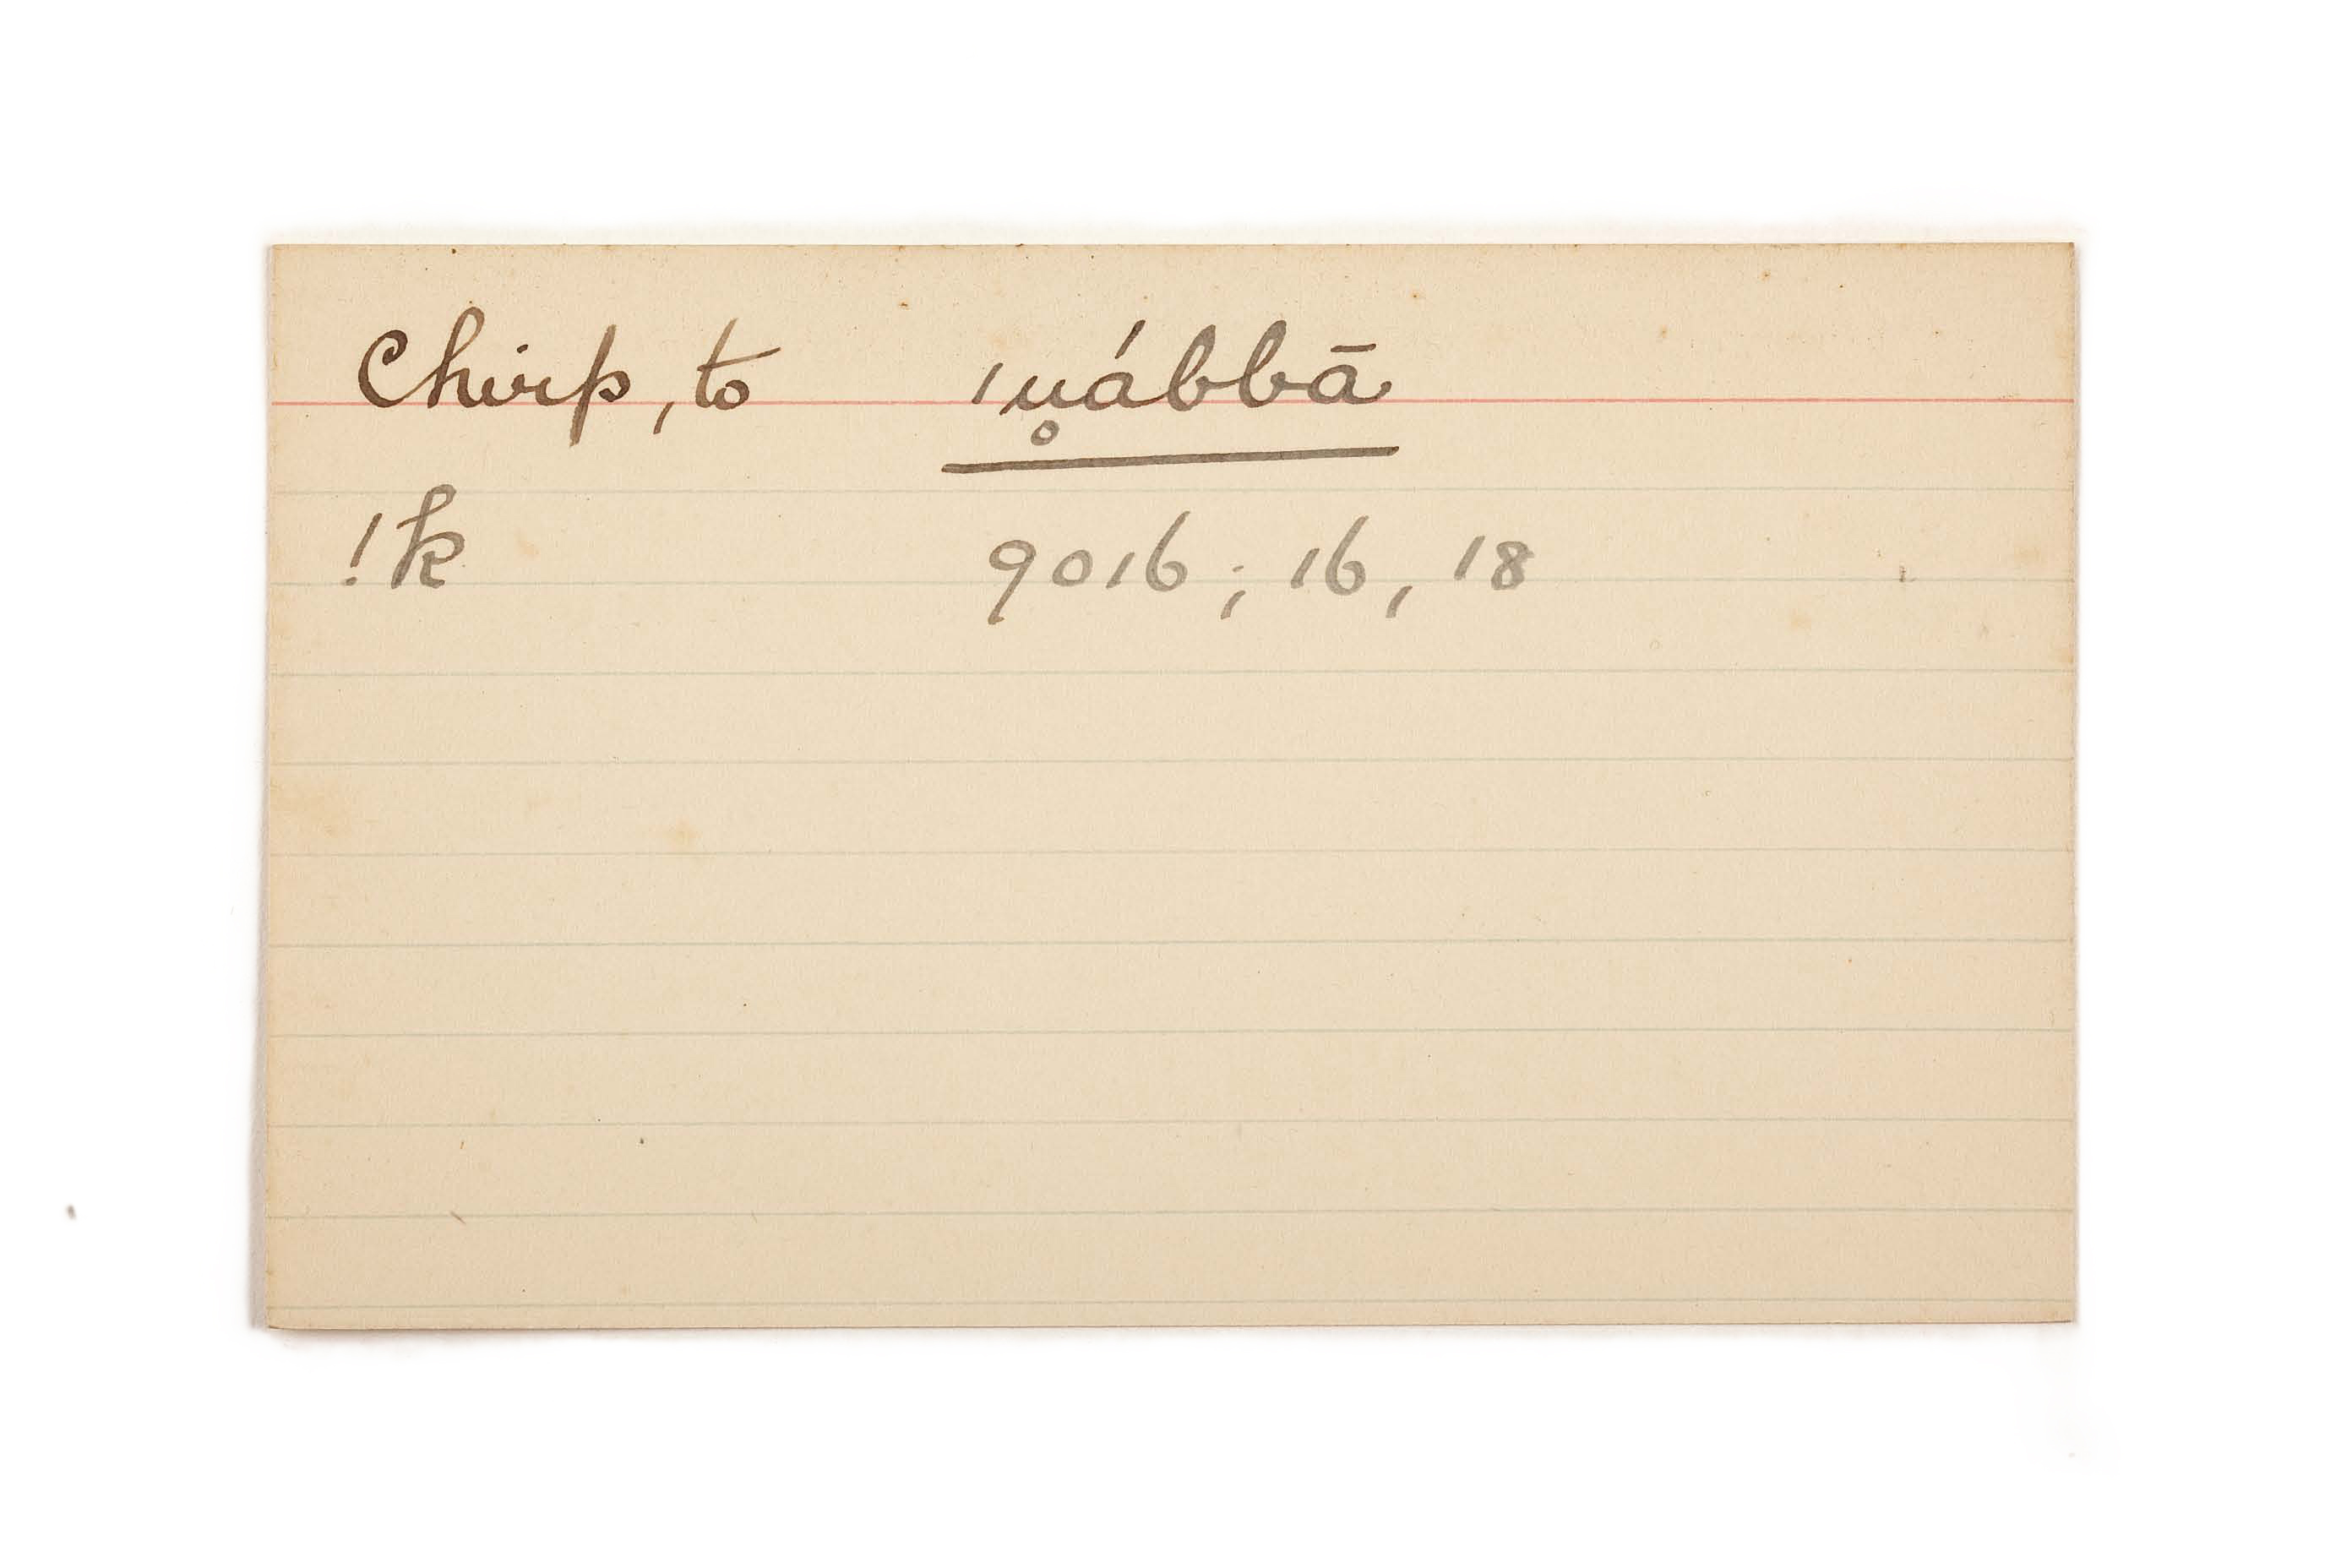 Chirp, to ˈu̥ábbā
!k 9016; 16, 18